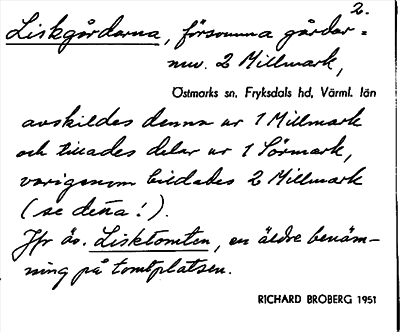 2.
Liskgårdarna, försvunna gårdar =
nuv. 2 Millmark,
Östmarks sn. Fryksdals hd, Värml. län
avskildes denna ur 1 Millmark
och tillades delar ur 1 Sörmark,
varigenom bildades 2 Millmark
(se detta!).
Jfr äv. Lisktomten, en äldre benäm-
ning på tomtplatsen.
RICHARD BROBERG 1951